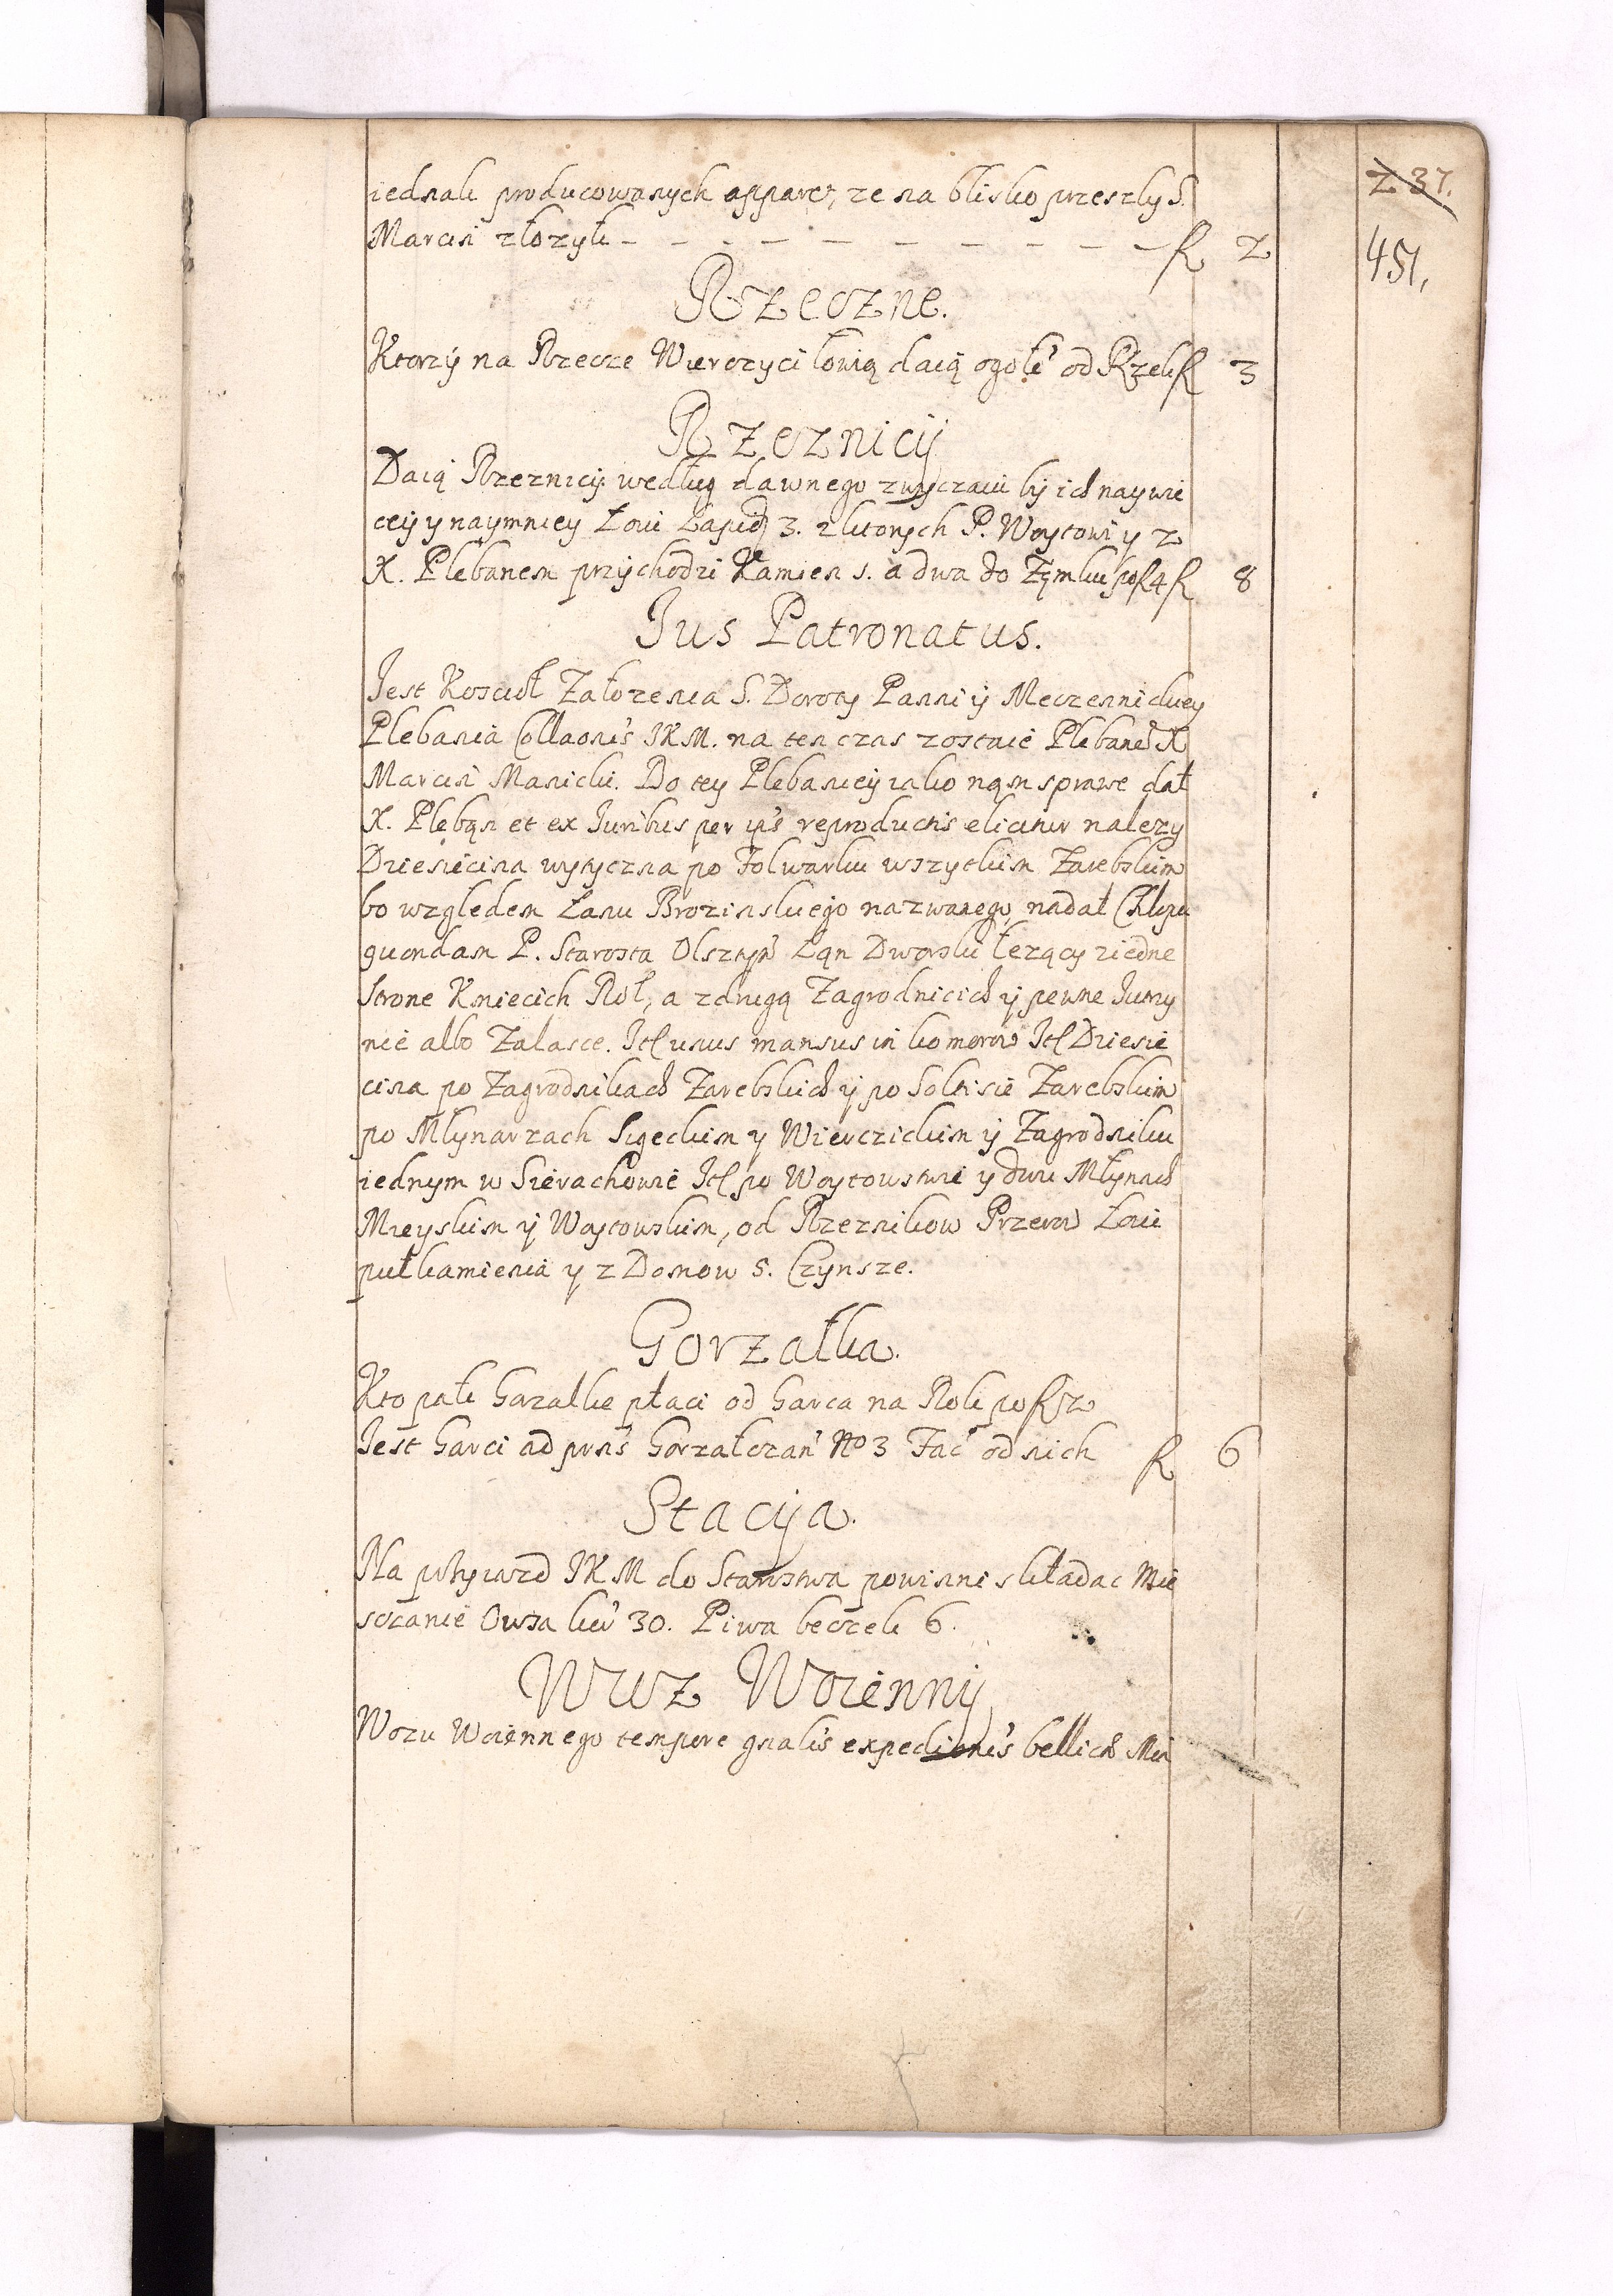 Z 37.
451.
iednak producowanych apparet, ze na blisko przeszly S.
Marcin zlozyli – – – – – – – – – – fl 2
Rzeczne.
Ktorzÿ na Rzecze Wierczyci łowią daią ogołe od Rzek fl 3
Rzeznicÿ
Daią Rzeznicÿ według dawnego zwyczaiu bÿ ich naywie
ceÿ y naymnieÿ Łoiu 3. z ktorych P. Woytowi y z
X. Plebanem przÿchodzi Kamien 1. a dwa do Zamku po fl 4 fl 8
Jus Patronatus.
Jest Kosciół Założenia S. Doroty Panni ÿ Meczennickiey
Plebania Collaonis JKM. na ten czas zostaie Plebanem X
Marcin Manicki. Do tey Plebaniey iako nąm sprawe dał
X. Plebąn et ex Juribus per ips reproductis elicitur nalezy
Dziesiecina wytyczna po Folwarku wszytkim Zarebskim
bo względem Łanu Brozinskiego nazwanego, nadał
quondam P. Starosta Olsztyn Łąn Dworski leząсy z iedne
strone Kmiecich Rol, a z drugą Zagrodnicich ÿ pewne Jutrzy
nie albo Zalasce. Itt unus mansus in komorow Itt Dziesie
cina po Zagrodnikach Zarebskich ÿ po Soltisie Zarebskim
po Młynarzach Sygeckim y Wierczickim ÿ Zagrodniku
iednym w Sierachowie Itt po Woytowstwie y dwu Młynach
Mieyskim ÿ Woytowskim, od Rzeznikow Przerow Łoiu
pułkamienia y z Domow S. Czynsze.
Gorzałka.
Kto pali Gorzałke płaci od Garca na Rok po fl 2
Jest Garci ad prns Gorzałczan No 3 Fac od nich fl 6
Stacÿa.
Na przyiazd JKM do Starostwa powinni składac Mie
szczanie Owsa kor 30. Piwa beczek 6.
Wuz Woiennÿ
Wozu Woiennego tempore gnalis expedionis bellice Mia